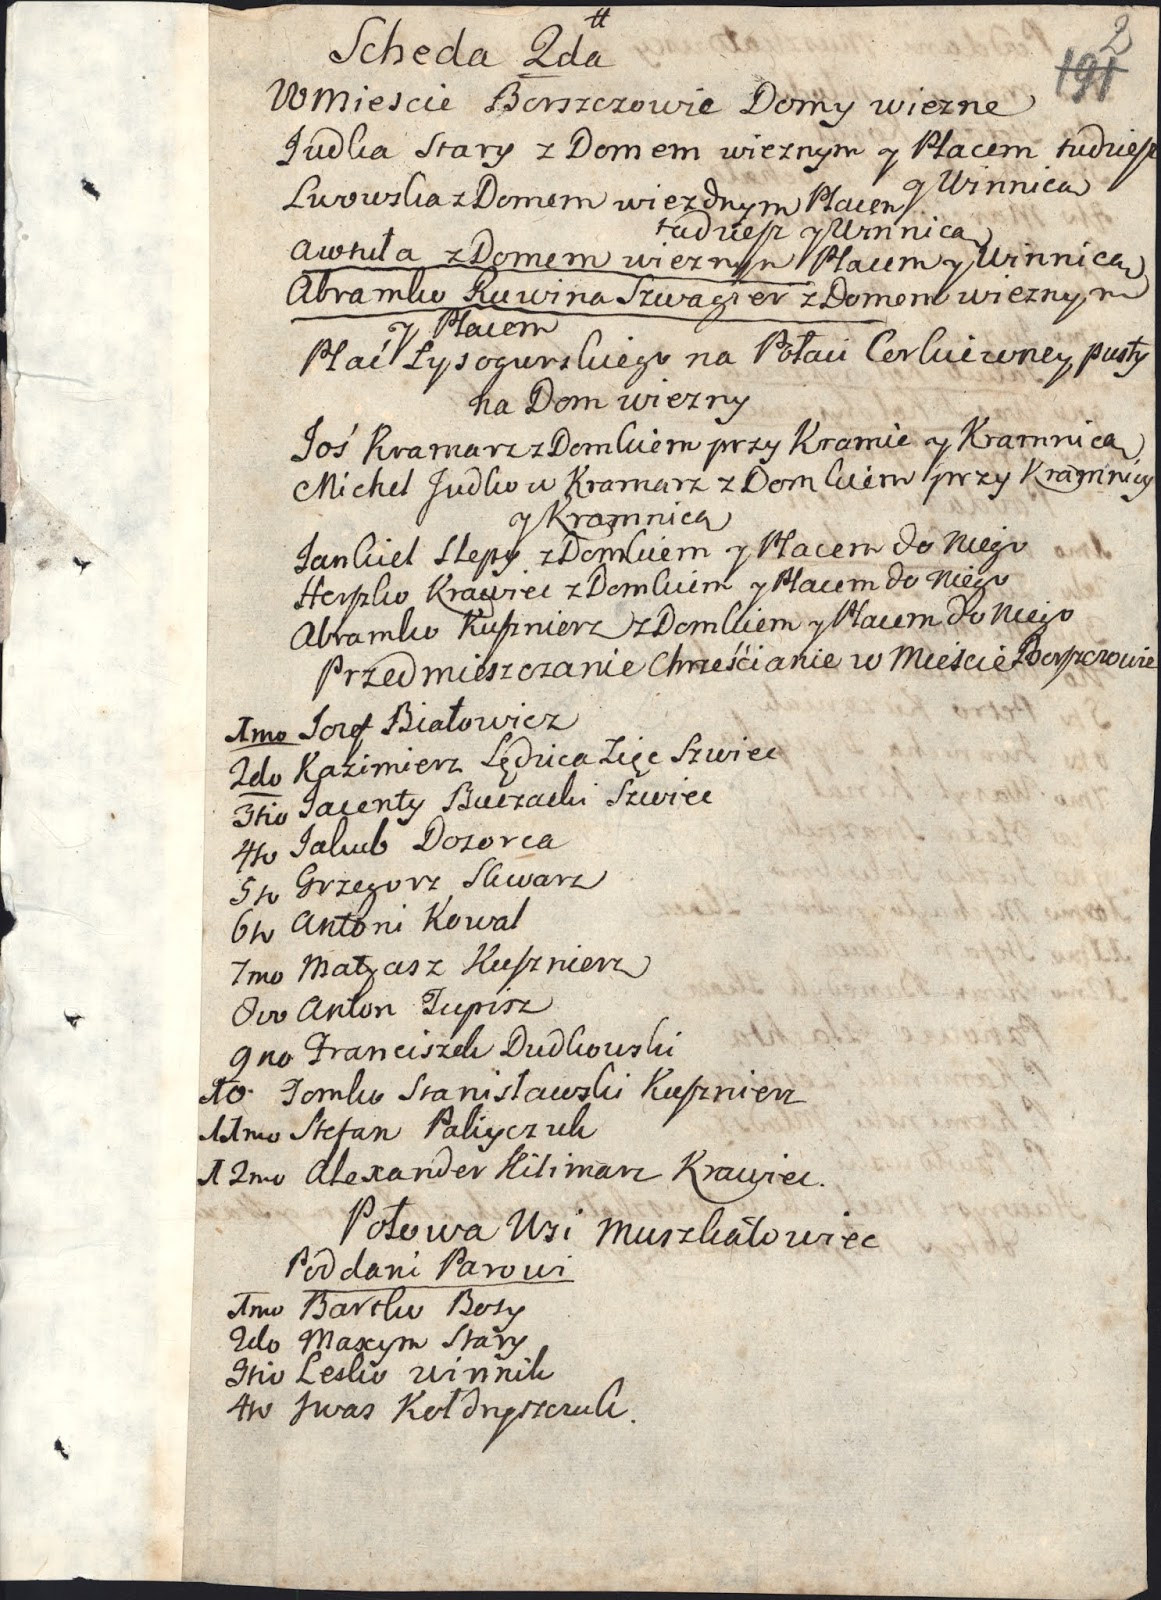 2
191
Scheda 2da
W Miescie Borszczowie Domy wiezne
Judka Stary z Domem wieznym y Placem tudziesz
y Winnicą
Lwowska z Domem wiezdnym Placem
tudziesz y Winnicą
Awtuła z Domem wieznym Placem y Winnicą
Abramko Ruwina Szwagier z Domem wieznym
y Placem
Plac Łysogurskiego na Połaci Cerkiewney pusty
na Dom wiezny
Joś Kramarz z Domkiem przy Kramie y Kramnicą
Michel Judkow Kramarz z Domkiem przy Kramnicy
y Kramnicą
Jankiel Slepy z Domkiem y Placem do Niego
Herszko Krawiec z Domkiem y Placem do Niego
Abramko Kusznierz z Domkiem y Placem do Niego
Przedmieszczanie Chrześcianie w Mieście Borszczowie
1mo Jozef Białowicz
2do Kazimierz Sędzica Zięc Szwiec
3tio Jacenty Buczacki Szwiec
4to Jakub Dozorca
5to Grzegorz Slwarz
6to Antoni Kowal
7mo Matyasz Kusznierz
8vo Anton Tupisz
9no Franciszek Dudkowski
10. Tomko Stanisławski Kusznierz
11mo Stefan Paliyczuk
12mo Alexander Kilimarz Krawiec.
Połowa Wsi Muszkatowiec
Poddani Parowi
1mo Bartko Bosy
2do Maxym Stary
3tio Lesko Winnik
4to Iwas Kołdryszczuk.